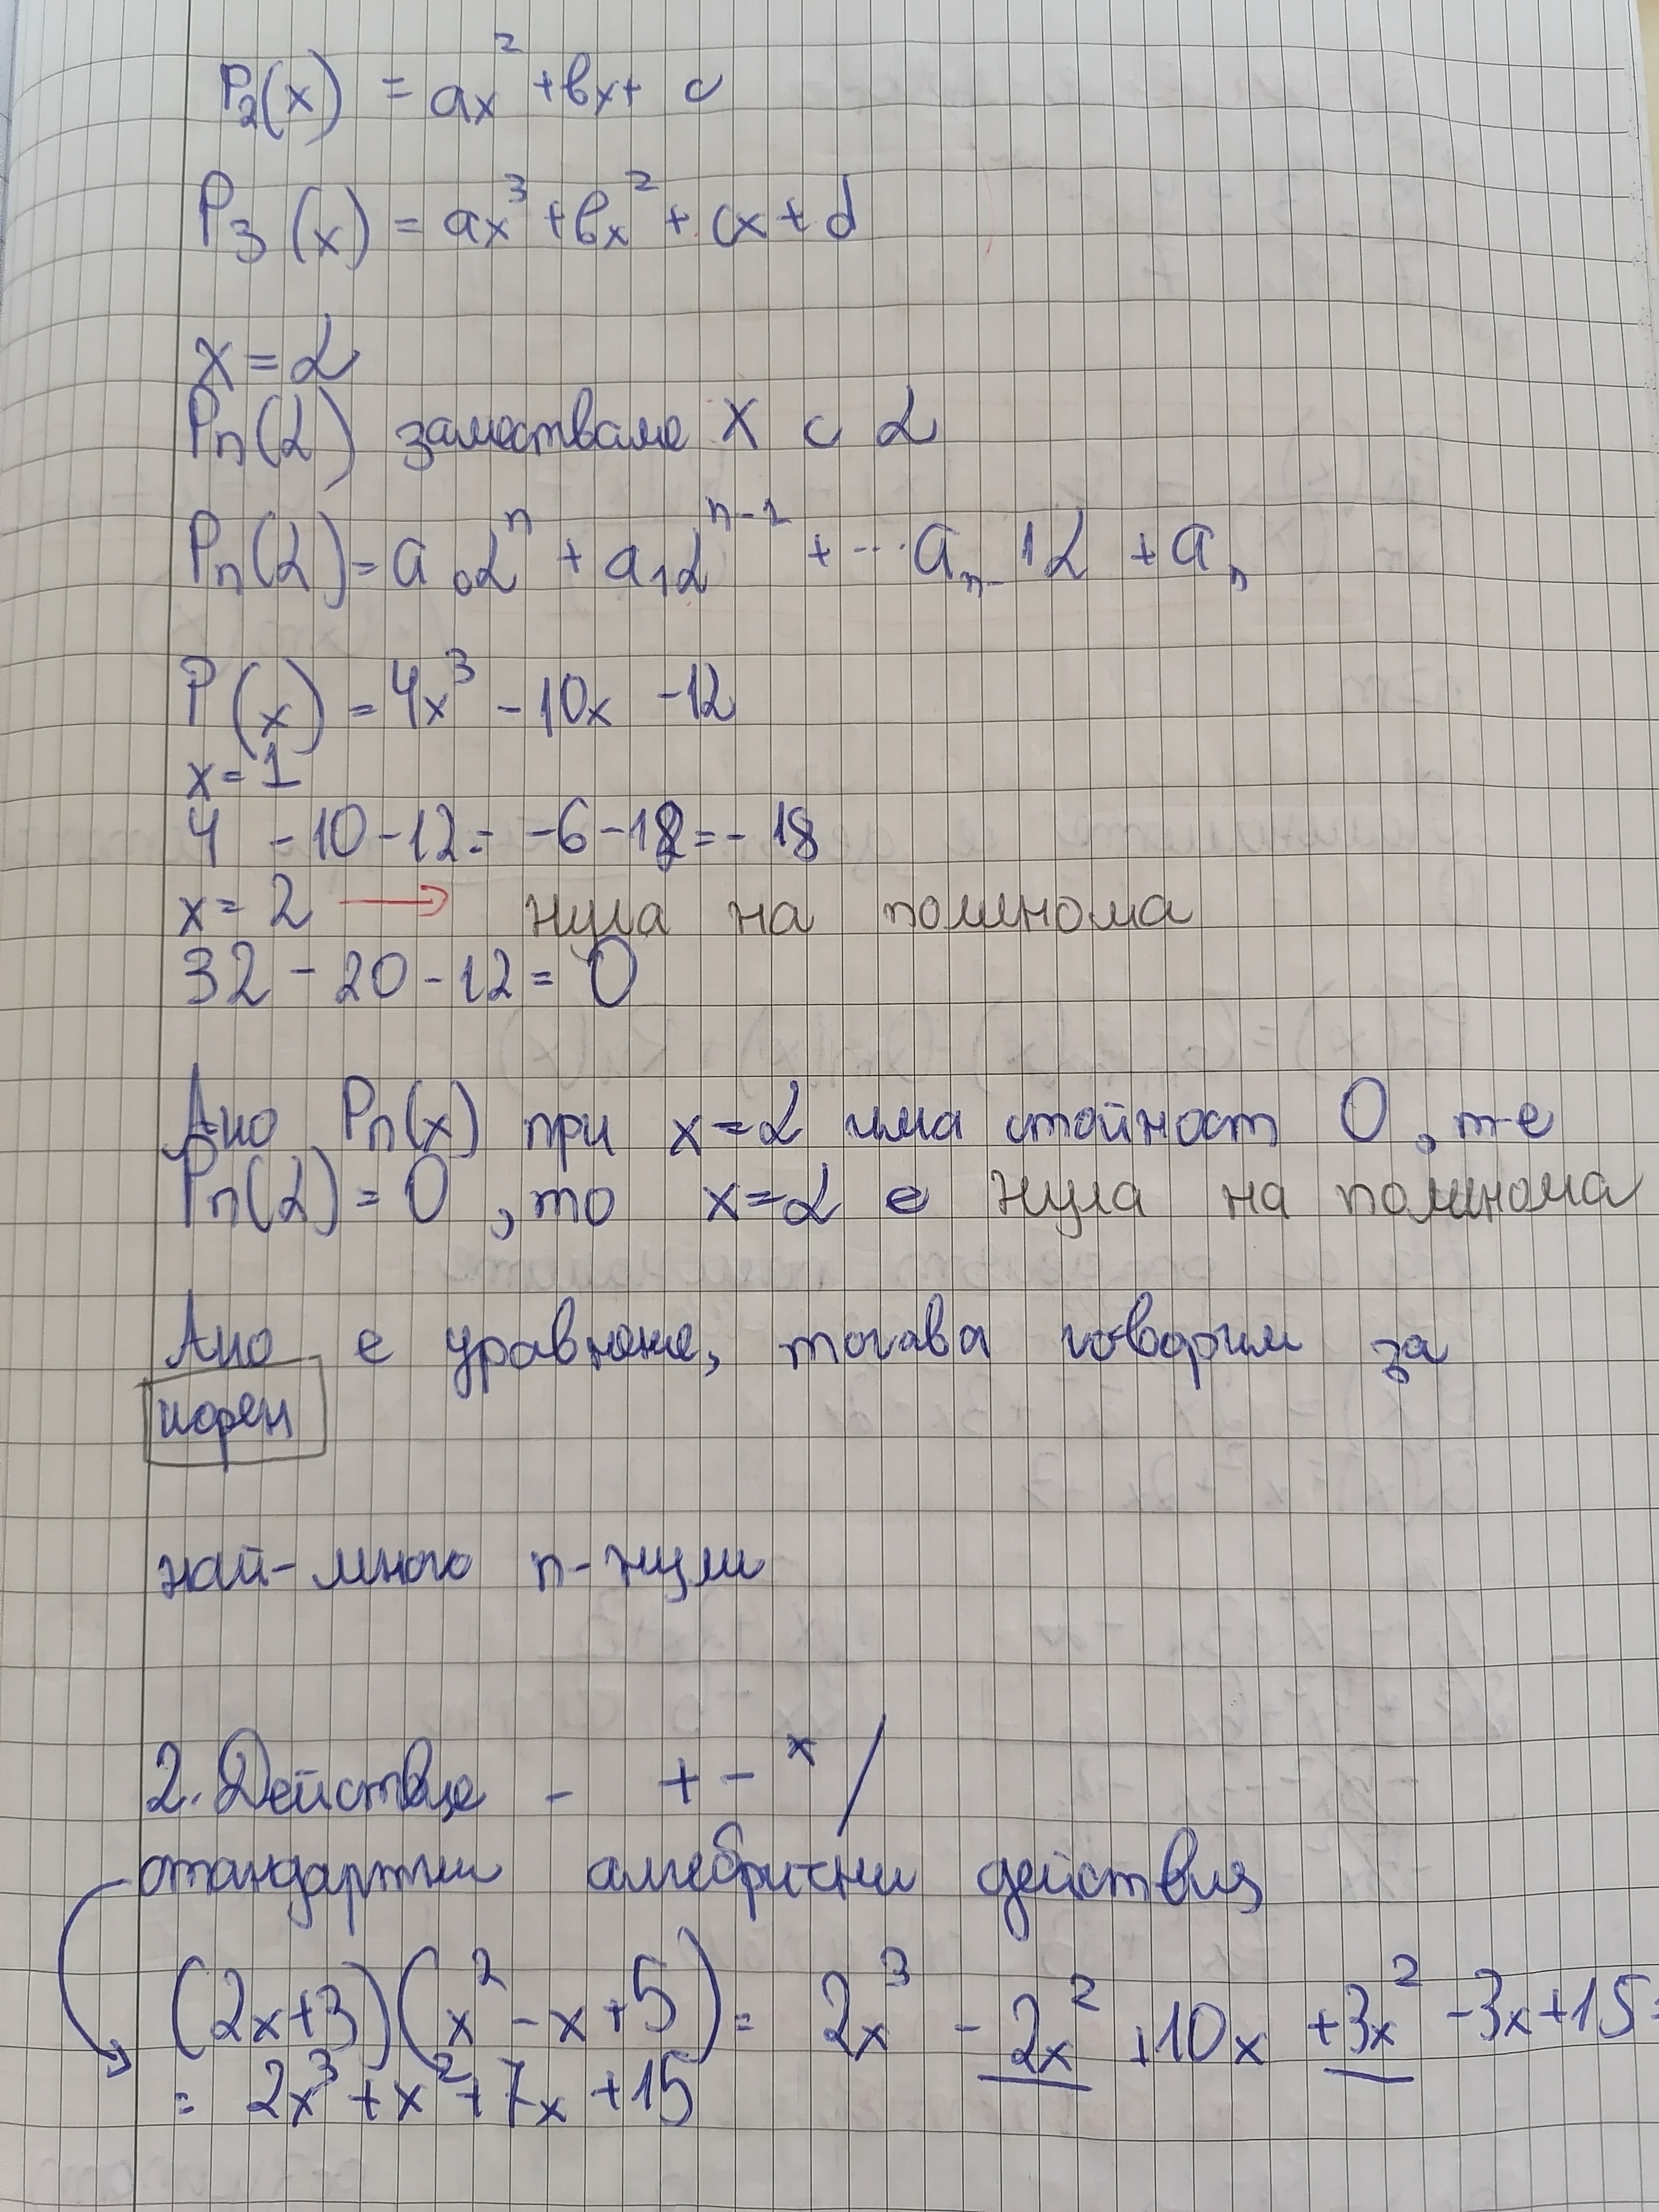 P₂(x) = ax² + bx + c
P₃(x) = ax³ + bx² + cx + d
x = α
Pn(α) заместваме x с α
Pn(α) = a₀αⁿ + a₁αⁿ⁻¹ + ... aₙ₋1α + aₙ
P(x) = 4x³ - 10x - 12
x = 1
4 - 10 - 12 = -6 - 12 = -18
x = 2 → нула на полинома
32 - 20 - 12 = 0
Ако Pn(x) при x = α има стойност 0, т-е
Pn(α) = 0, то x = α е нула на полинома
Ако е уравнение, тогава говорим за
корен
най-много n-нули
2. Действие - + - x /
стандартни алгебрични действия
(2x+3)(x² - x + 5) = 2x³ - 2x² + 10x + 3x² - 3x + 15 =
= 2x³ + x² + 7x + 15